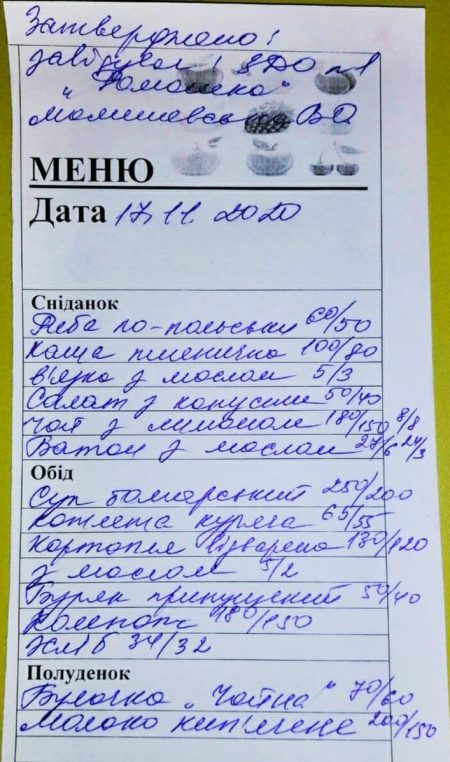 Затверджено:
завідувач ЗДО №1
„Ромашка"
МЕНЮ
Дата 17.11.2020
Сніданок
Риба по-польськи 60/50
Каша пшенична 100/80
в'язка з маслом 5/3
Салат з капусти 50/40
Чай з лимоном 180/150 8/8
Батон з маслом 27/6 24/3
Обід
Суп болгарський 250/200
Котлета куряча 65/55
Картопля відварена 130/120
з маслом 5/2
Буряк припущений 50/40
Компот 180/150
Хліб 34/32
Полуденок
Булочка „Чайна" 70/60
Молоко кип'ячене 200/150